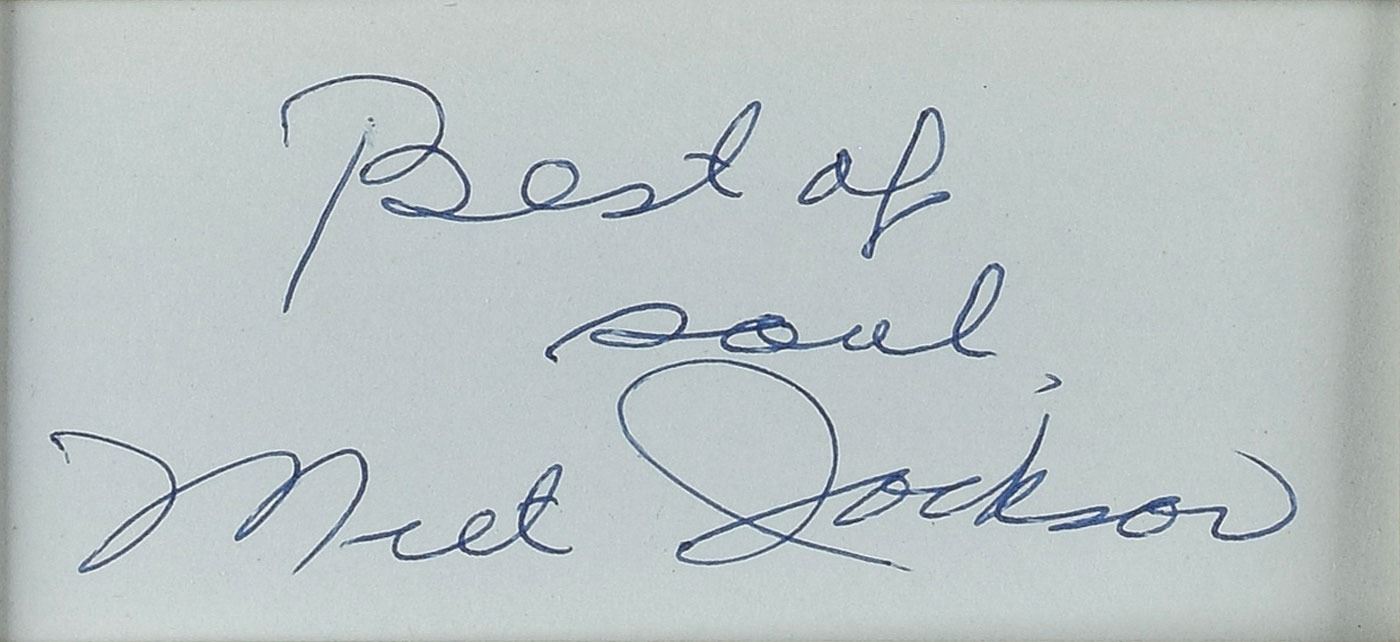 Best of
soul,
Milt Jackson